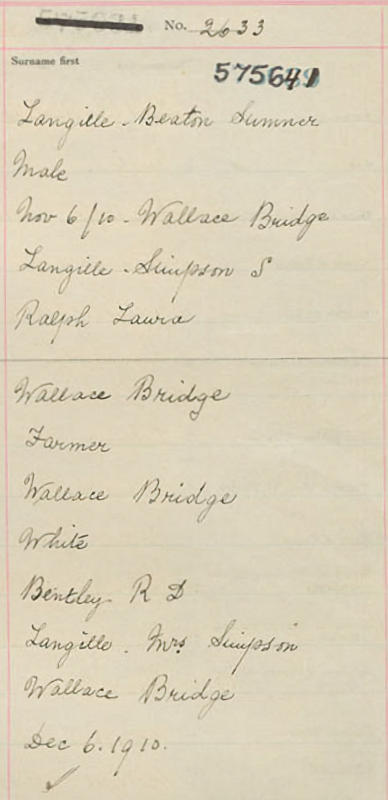 No. 2633
Surname first
Langille - Beaton Sumner
Male
Nov 6/10 - Wallace Bridge
Langille - Simpson S
Ralph Laura
Wallace Bridge
Farmer
Wallace Bridge
White
Bentley R D
Langille. Mrs Simpson
Wallace Bridge
Dec 6. 1910.